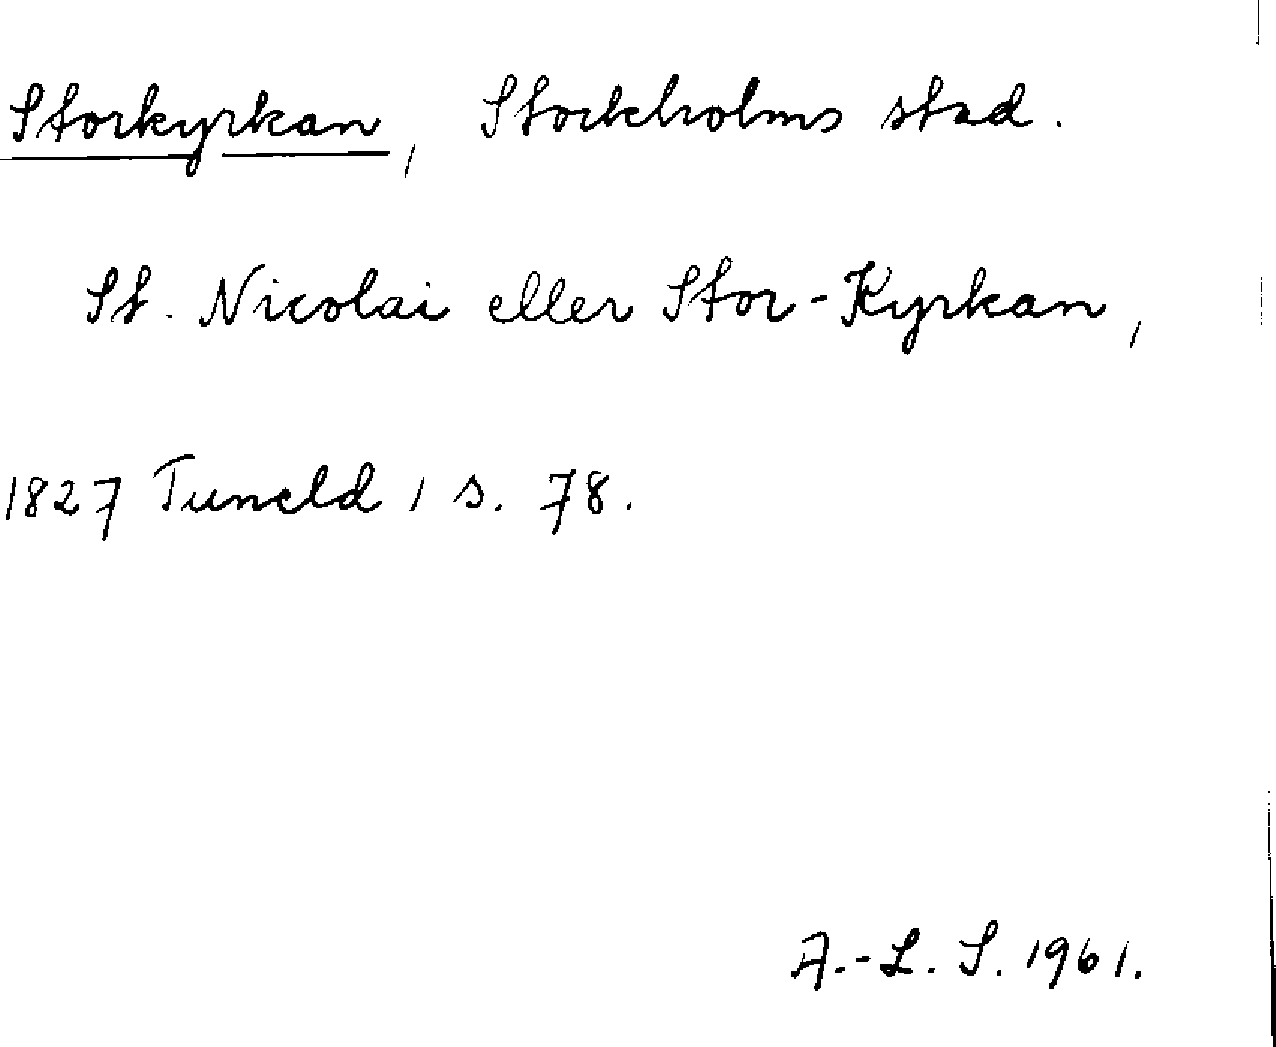 Storkyrkan, Stockholms stad.
St. Nicolai eller Stor-Kyrkan,
1827 Tuneld 1 s. 78.
A.-L. S. 1961.